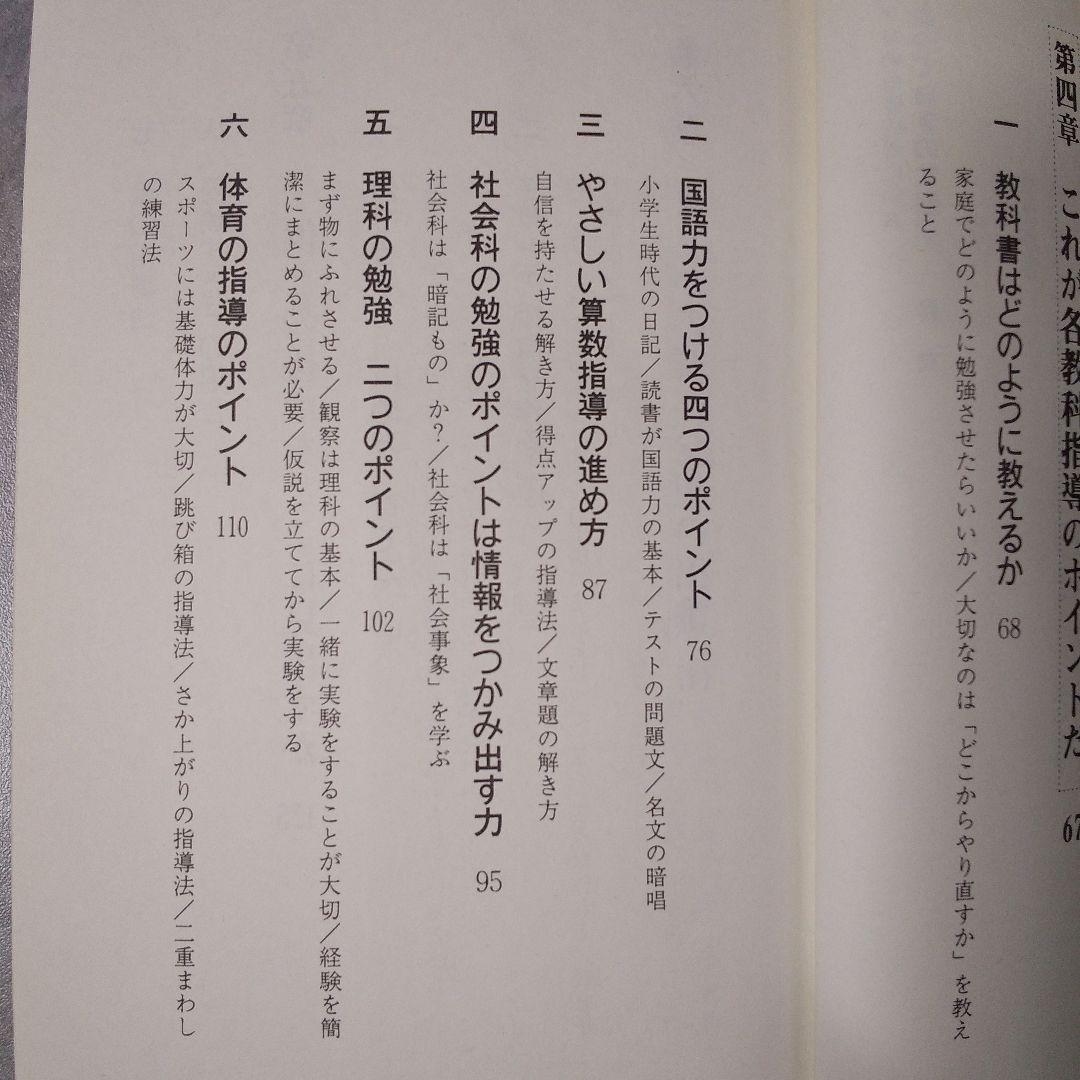 第四章 これが各教科指導のポイントだ 67
一 教科書はどのように教えるか 68
家庭でどのように勉強させたらいいか/大切なのは「どこからやり直すか」を教え
ること
二 国語力をつける四つのポイント 76
小学生時代の日記/読書が国語力の基本/テストの問題文/名文の暗唱
三 やさしい算数指導の進め方 87
自信を持たせる解き方/得点アップの指導法/文章題の解き方
四 社会科の勉強のポイントは情報をつかみ出す力 95
社会科は「暗記もの」か?/社会科は「社会事象」を学ぶ
五 理科の勉強 二つのポイント 102
まず物にふれさせる/観察は理科の基本/一緒に実験をすることが大切/経験を簡
潔にまとめることが必要/仮説を立ててから実験をする
六 体育の指導のポイント 110
スポーツには基礎体力が大切/跳び箱の指導法/さか上がりの指導法/二重まわし
の練習法